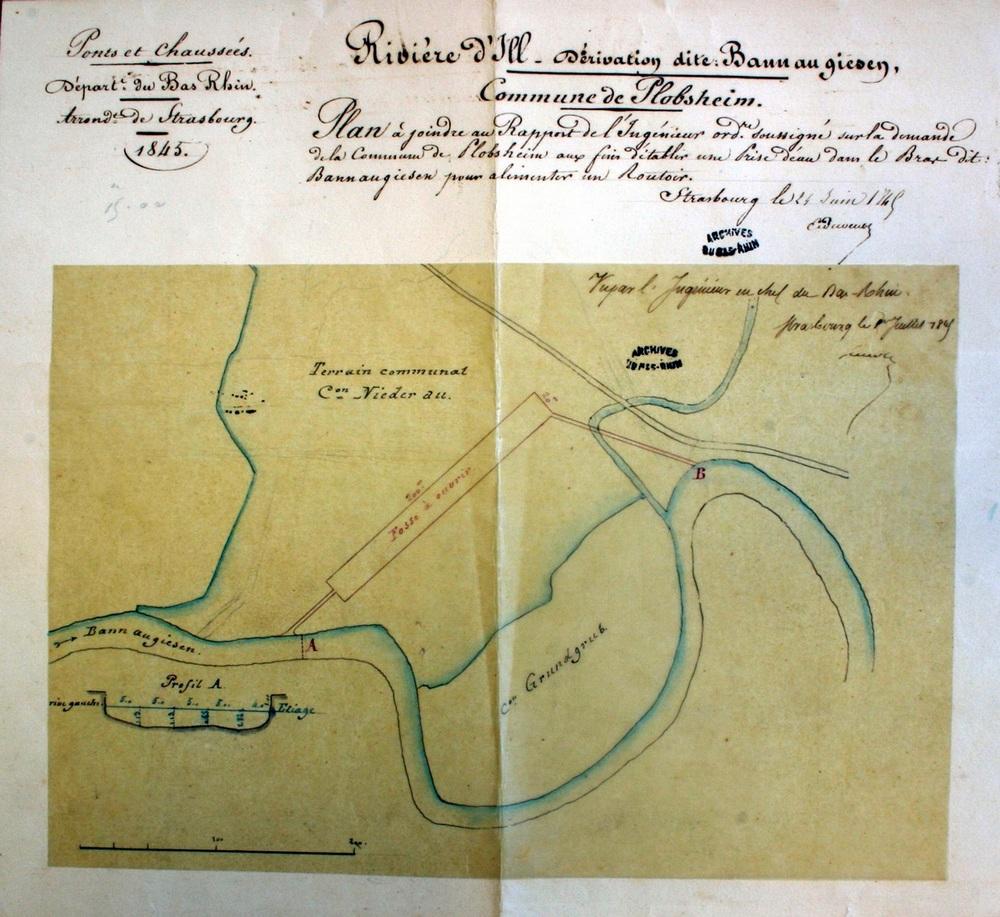 Ponts et Chaussées.
Départ.t du Bas Rhin.
Arrond.t de Strasbourg.
1845.
Rivière d'Ill - Dérivation dite: Bannaugiesen,
Commune de Plobsheim.
Plan à joindre au Rapport de l'Ingénieur ord.re soussigné sur la demande
de la Commune de Plobsheim aux fins d'établir une Prise d'eau dans le Bras dit:
Bannaugiesen pour alimenter un Routoir.
Strasbourg le 24 Juin 1845
ARCHIVES
DU BAS-RHIN
Vu par l'Ingénieur en chef du Bas-Rhin.
Strasbourg le 1er Juillet 1845
ARCHIVES
DU BAS-RHIN
Terrain communal
C.on Niederau.
200.m
Fosse à ouvrir
20.m
B
Bannaugiesen.
A
C.on Grundgrub.
Profil A.
rive gauche
5.0 5.0 5.0 5.0
Etiage
100
200.